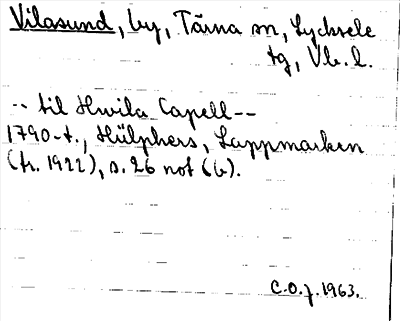 Vilasund, by, Tärna sn, Lycksele
tg, Vb. l.
-- til Hwila Capell --
1790-t., Hülphers, Lappmarken
(tr. 1922), s. 26 not (b).
C.O.J. 1963.